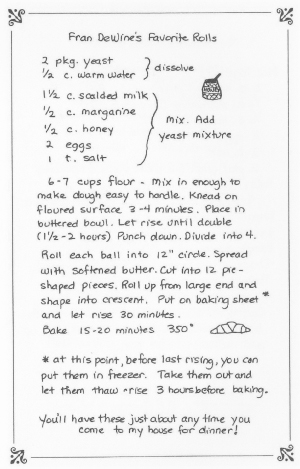 Fran DeWine's Favorite Rolls
2 pkg. yeast
1/2 c. warm water
dissolve
1 1/2 c. scalded milk
1/2 c. margarine
1/2 c. honey
2 eggs
1 t. salt
mix. Add
yeast mixture
6-7 cups flour - mix in enough to
make dough easy to handle. Knead on
floured surface 3-4 minutes. Place in
buttered bowl. Let rise until double
(1 1/2 - 2 hours) Punch down. Divide into 4.
Roll each ball into 12" circle. Spread
with softened butter. Cut into 12 pie-
shaped pieces. Roll up from large end and
shape into crescent. Put on baking sheet *
and let rise 30 minutes.
Bake 15-20 minutes 350°
* at this point, before last rising, you can
put them in freezer. Take them out and
let them thaw + rise 3 hours before baking.
You'll have these just about any time you
come to my house for dinner!